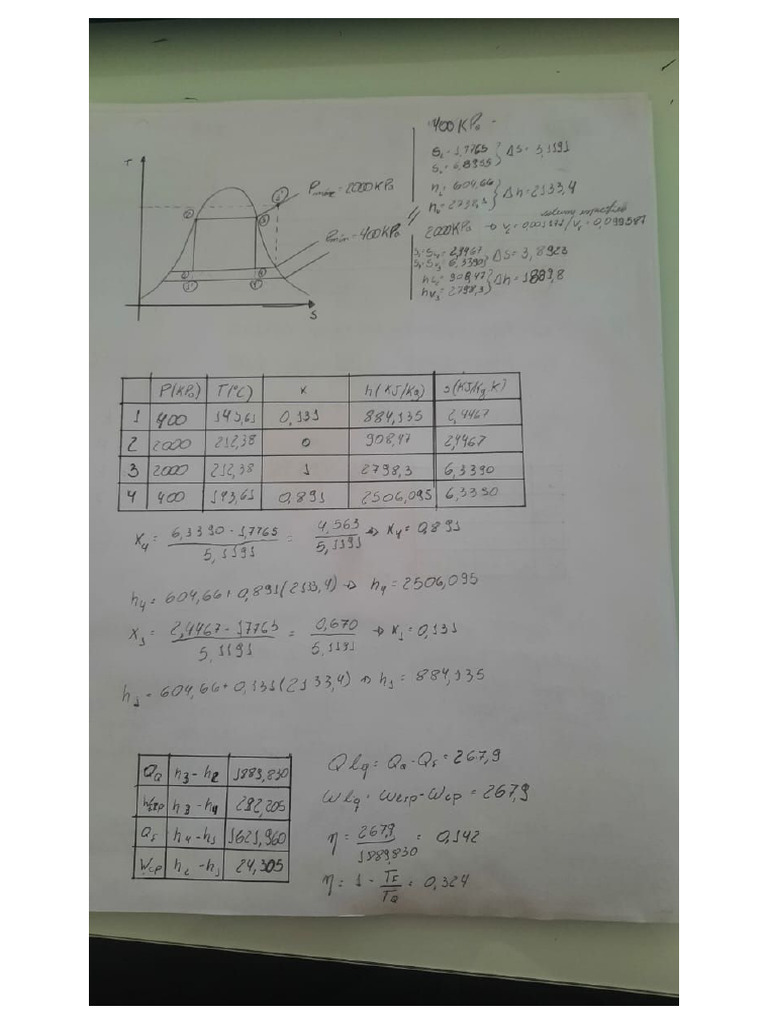 400 KPa
S₁=1,7765 } ΔS=5,1191
Sᵥ=6,8955
h₁=604,66 } Δh=2133,4
2000KPa
ΔS=3,8923
h₁=908,47 } Δh=1889,8
hᵥ₃=2798,3
T
Pmáx=2000KPa
Pmin=400KPa
S
P(KPa) T(°C) x h(KJ/Kg) s(KJ/Kg.K)
1 400 143,61 0,131 884,135 2,4467
2 2000 212,38 0 908,47 2,4467
3 2000 212,38 1 2798,3 6,3390
4 400 143,61 0,891 2506,095 6,3390
X₄= 6,3390-1,7765 / 5,1191 = 4,563 / 5,1191 → X₄=0,891
h₄=604,66+0,891(2133,4) → h₄=2506,095
X₁= 2,4467-1,7765 / 5,1191 = 0,670 / 5,1191 → X₁=0,131
h₁=604,66+0,131(2133,4) → h₁=884,135
Qq h₃-h₂ 1889,830
Wexp h₃-h₄ 292,205
Qf h₄-h₁ 1621,960
Wcp h₂-h₁ 24,305
Qlq=Qq-Qf=267,9
Wlq=Wexp-Wcp=267,9
η= 267,9 / 1889,830 = 0,142
η= 1 - TF / TQ = 0,324